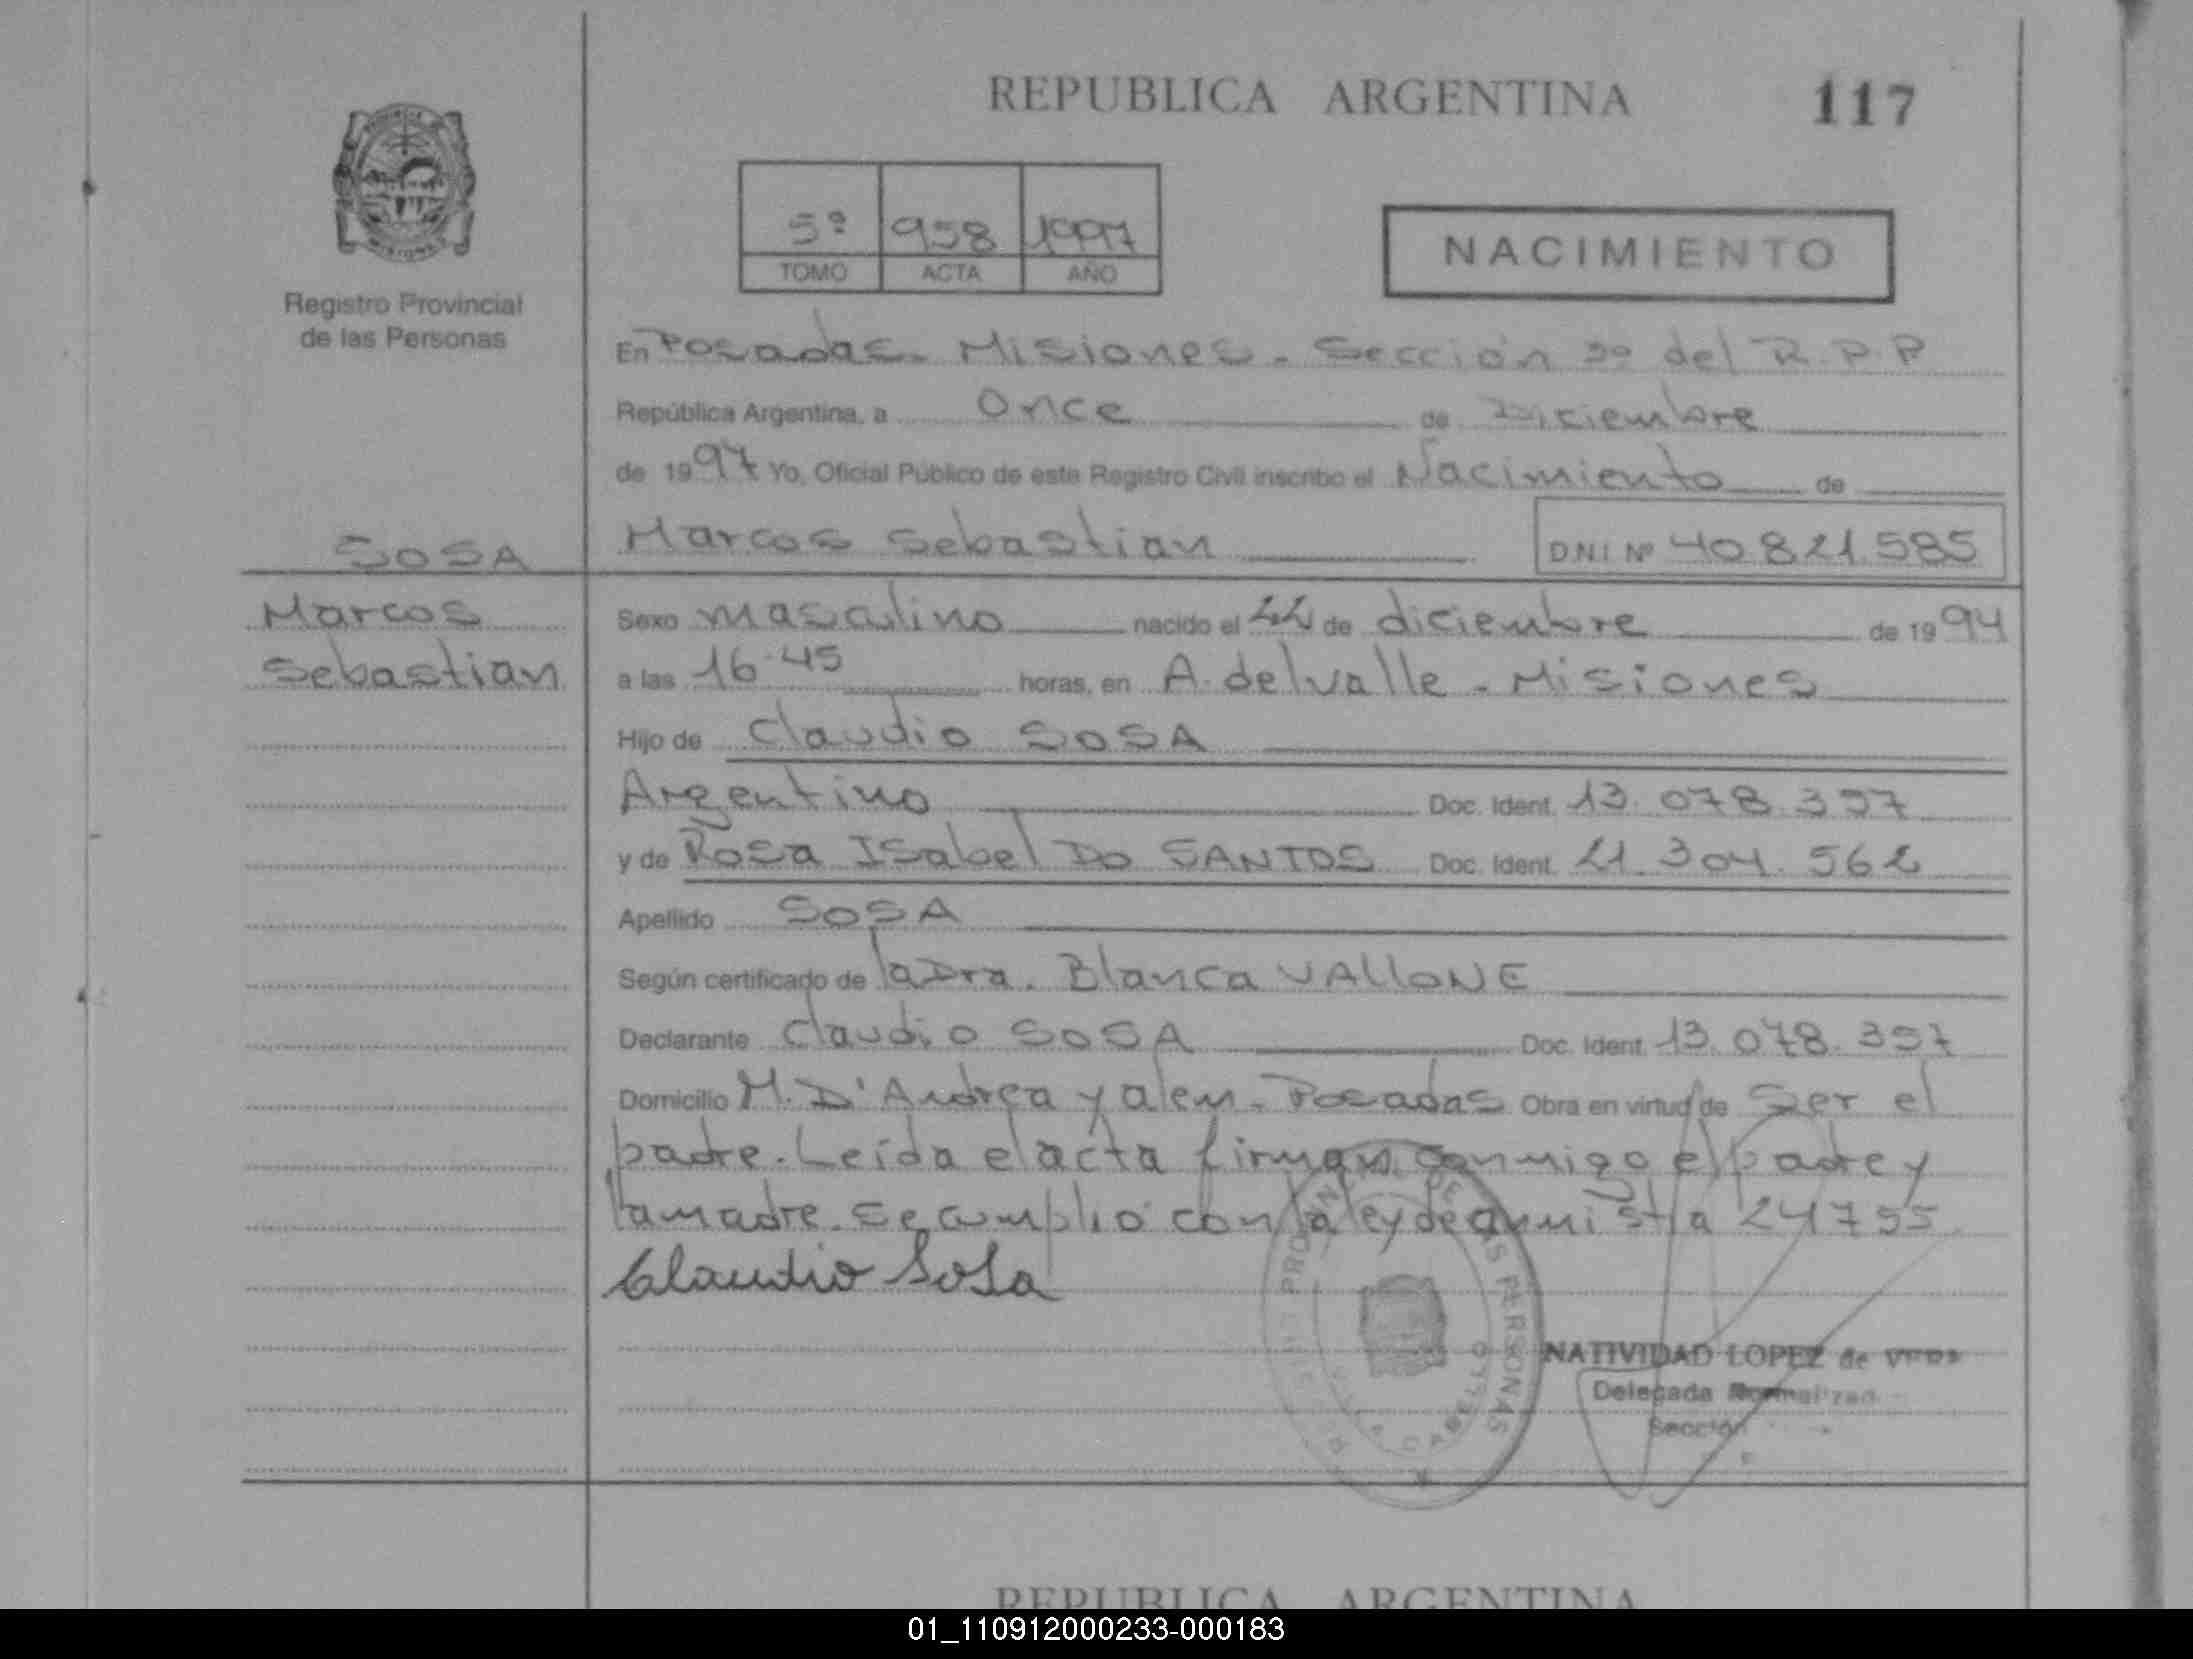 REPUBLICA ARGENTINA
117
5º 958 1997
TOMO ACTA AÑO
NACIMIENTO
Registro Provincial
de las Personas
En Posadas. Misiones. Sección 3º del R.P.P
República Argentina, a Once de Diciembre
de 1997 Yo, Oficial Público de este Registro Civil inscribo el Nacimiento de
SOSA
Marcos Sebastian
D.N.I Nº 40.821.585
Marcos
Sebastian
Sexo masculino nacido el 22 de diciembre de 1994
a las 16.45 horas, en A. del valle. Misiones
Hijo de Claudio SOSA
Argentino Doc. Ident. 13.078.397
y de Rosa ISabel Do SANTOS Doc. Ident. 21.304.562
Apellido SOSA
Según certificado de la Dra. Blanca VALLONE
Declarante Claudio SOSA Doc. Ident. 13.078.397
Domicilio M. D'Andrea y alem. Posadas Obra en virtud de Ser el
padre. Leída el acta firman conmigo el padre y
la madre. Se cumplió con la ley de amnistia 24755.
Claudio Sosa
PROVINCIAL DE LAS PERSONAS
NATIVIDAD LOPEZ de
Delegada
Sección
REPUBLICA ARGENTINA
01_110912000233-000183